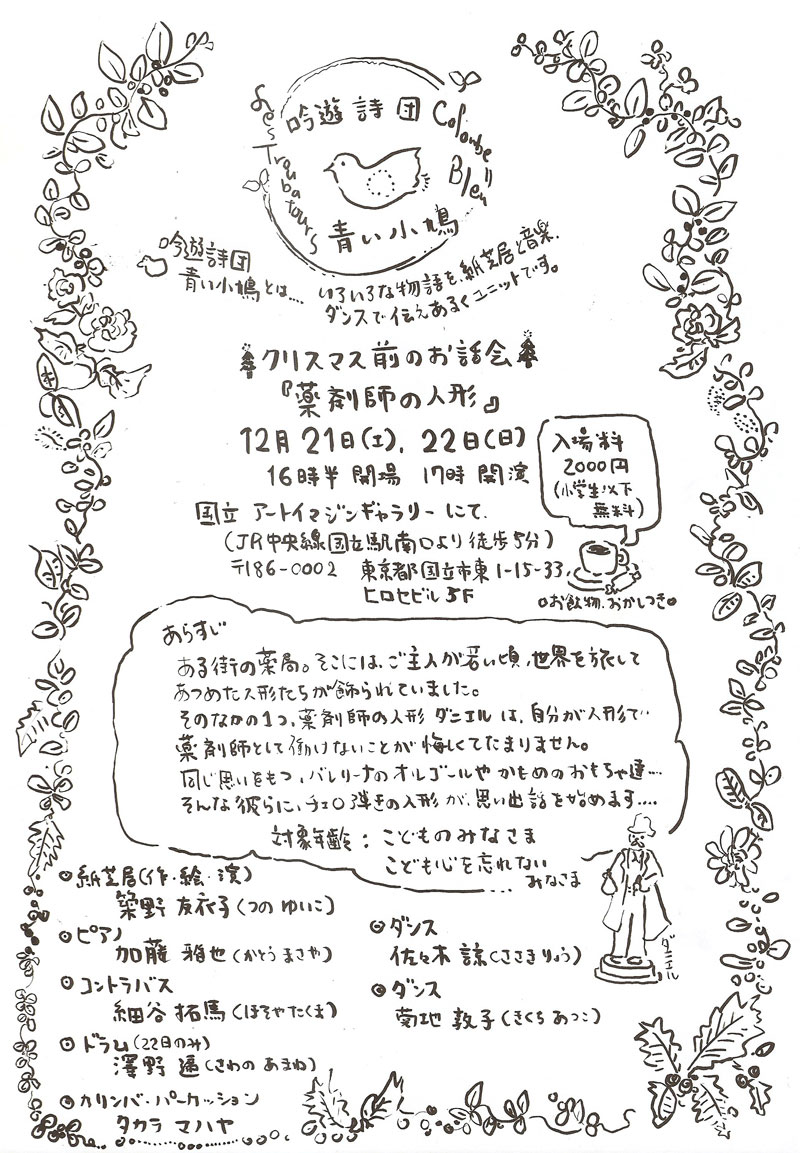 吟遊詩団
Les Troubatours
Colombe Bleu
青い小鳩
吟遊詩団
青い小鳩とは....
いろいろな物語を、紙芝居と音楽、
ダンスで伝えあるくユニットです。
クリスマス前のお話会
『薬剤師の人形』
12月21日(土)、22日(日)
16時半 開場 17時 開演
入場料
2000円
(小学生以下
無料)
国立 アートイマジンギャラリー にて。
(JR中央線国立駅南口より徒歩5分)
〒186-0002 東京都国立市東1-15-33
ヒロセビル5F
お飲物、おかしつき
あらすじ
ある街の薬局。そこには、ご主人が若い頃、世界を旅して
あつめた人形たちが飾られていました。
そのなかの1つ、薬剤師の人形 ダニエル は、自分が人形で‥
薬剤師として働けないことが悔しくてたまりません。
同じ思いをもつ、バレリーナのオルゴールや かもめのおもちゃ達…
そんな彼らに、チェロ弾きの人形 が、思い出話を始めます....
対象年齢：こどものみなさま
こども心を忘れない
みなさま
ダニエル
◎紙芝居(作・絵・演)
築野 友衣子(つの ゆいこ)
◎ピアノ
加藤 雅也(かとう まさや)
◎コントラバス
細谷 拓馬(ほそや たくま)
◎ドラム(22日のみ)
澤野 遥(さわの あまね)
◎カリンバ・パーカッション
タカラ マハヤ
◎ダンス
佐々木 諒(ささき りょう)
◎ダンス
菊地 敦子(きくち あつこ)